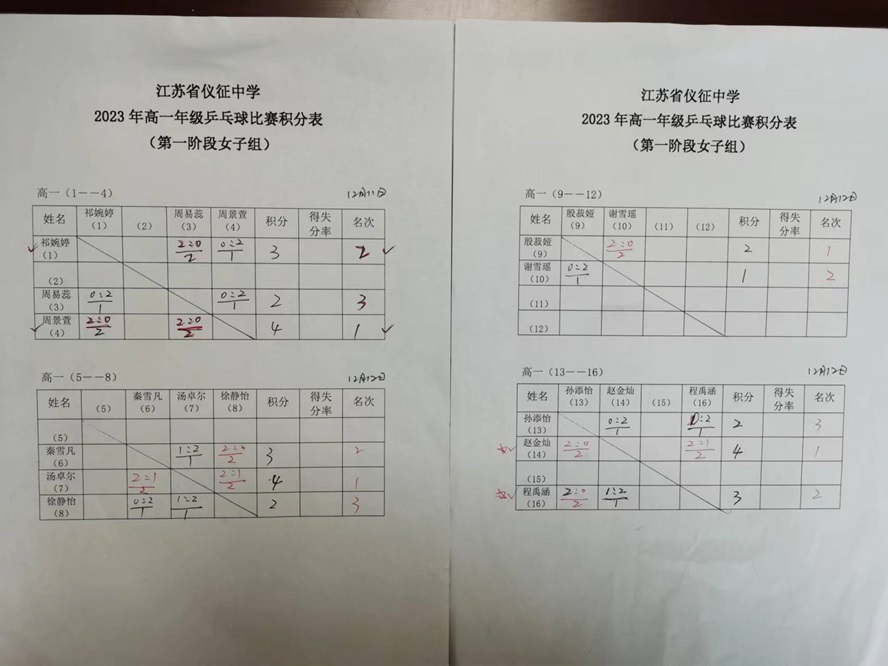 江苏省仪征中学
2023 年高一年级乒乓球比赛积分表
（第一阶段女子组）
高一（1——4） 12月11日
姓名 祁婉婷（1） （2） 周易蕊（3） 周景萱（4） 积分 得失分率 名次
祁婉婷（1） 2:0/2 0:2/1 3 2
（2）
周易蕊（3） 0:2/1 0:2/1 2 3
周景萱（4） 2:0/2 2:0/2 4 1
高一（5——8） 12月12日
姓名 （5） 秦雪凡（6） 汤卓尔（7） 徐静怡（8） 积分 得失分率 名次
（5）
秦雪凡（6） 1:2/1 2:0/2 3 2
汤卓尔（7） 2:1/2 2:1/2 4 1
徐静怡（8） 0:2/1 1:2/1 2 3
江苏省仪征中学
2023 年高一年级乒乓球比赛积分表
（第一阶段女子组）
高一（9——12） 12月12日
姓名 殷菽娅（9） 谢雪瑶（10） （11） （12） 积分 得失分率 名次
殷菽娅（9） 2:0/2 2 1
谢雪瑶（10） 0:2/1 1 2
（11）
（12）
高一（13——16） 12月12日
姓名 孙添怡（13） 赵金灿（14） （15） 程禹涵（16） 积分 得失分率 名次
孙添怡（13） 0:2/1 0:2/1 2 3
赵金灿（14） 2:0/2 2:1/2 4 1
（15）
程禹涵（16） 2:0/2 1:2/1 3 2